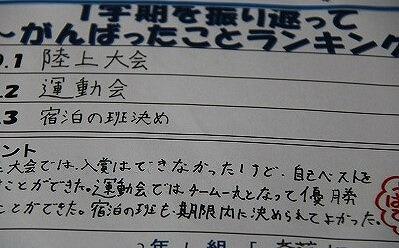 1学期を振り返って
～がんばったことランキング
.1 陸上大会
.2 運動会
.3 宿泊の班決め
ント
大会では、入賞はできなかったけど、自己ベストを
ことができた。運動会では、チーム一丸となって優勝
ことができた。宿泊の班も期限内に決められてよかった。
年 組